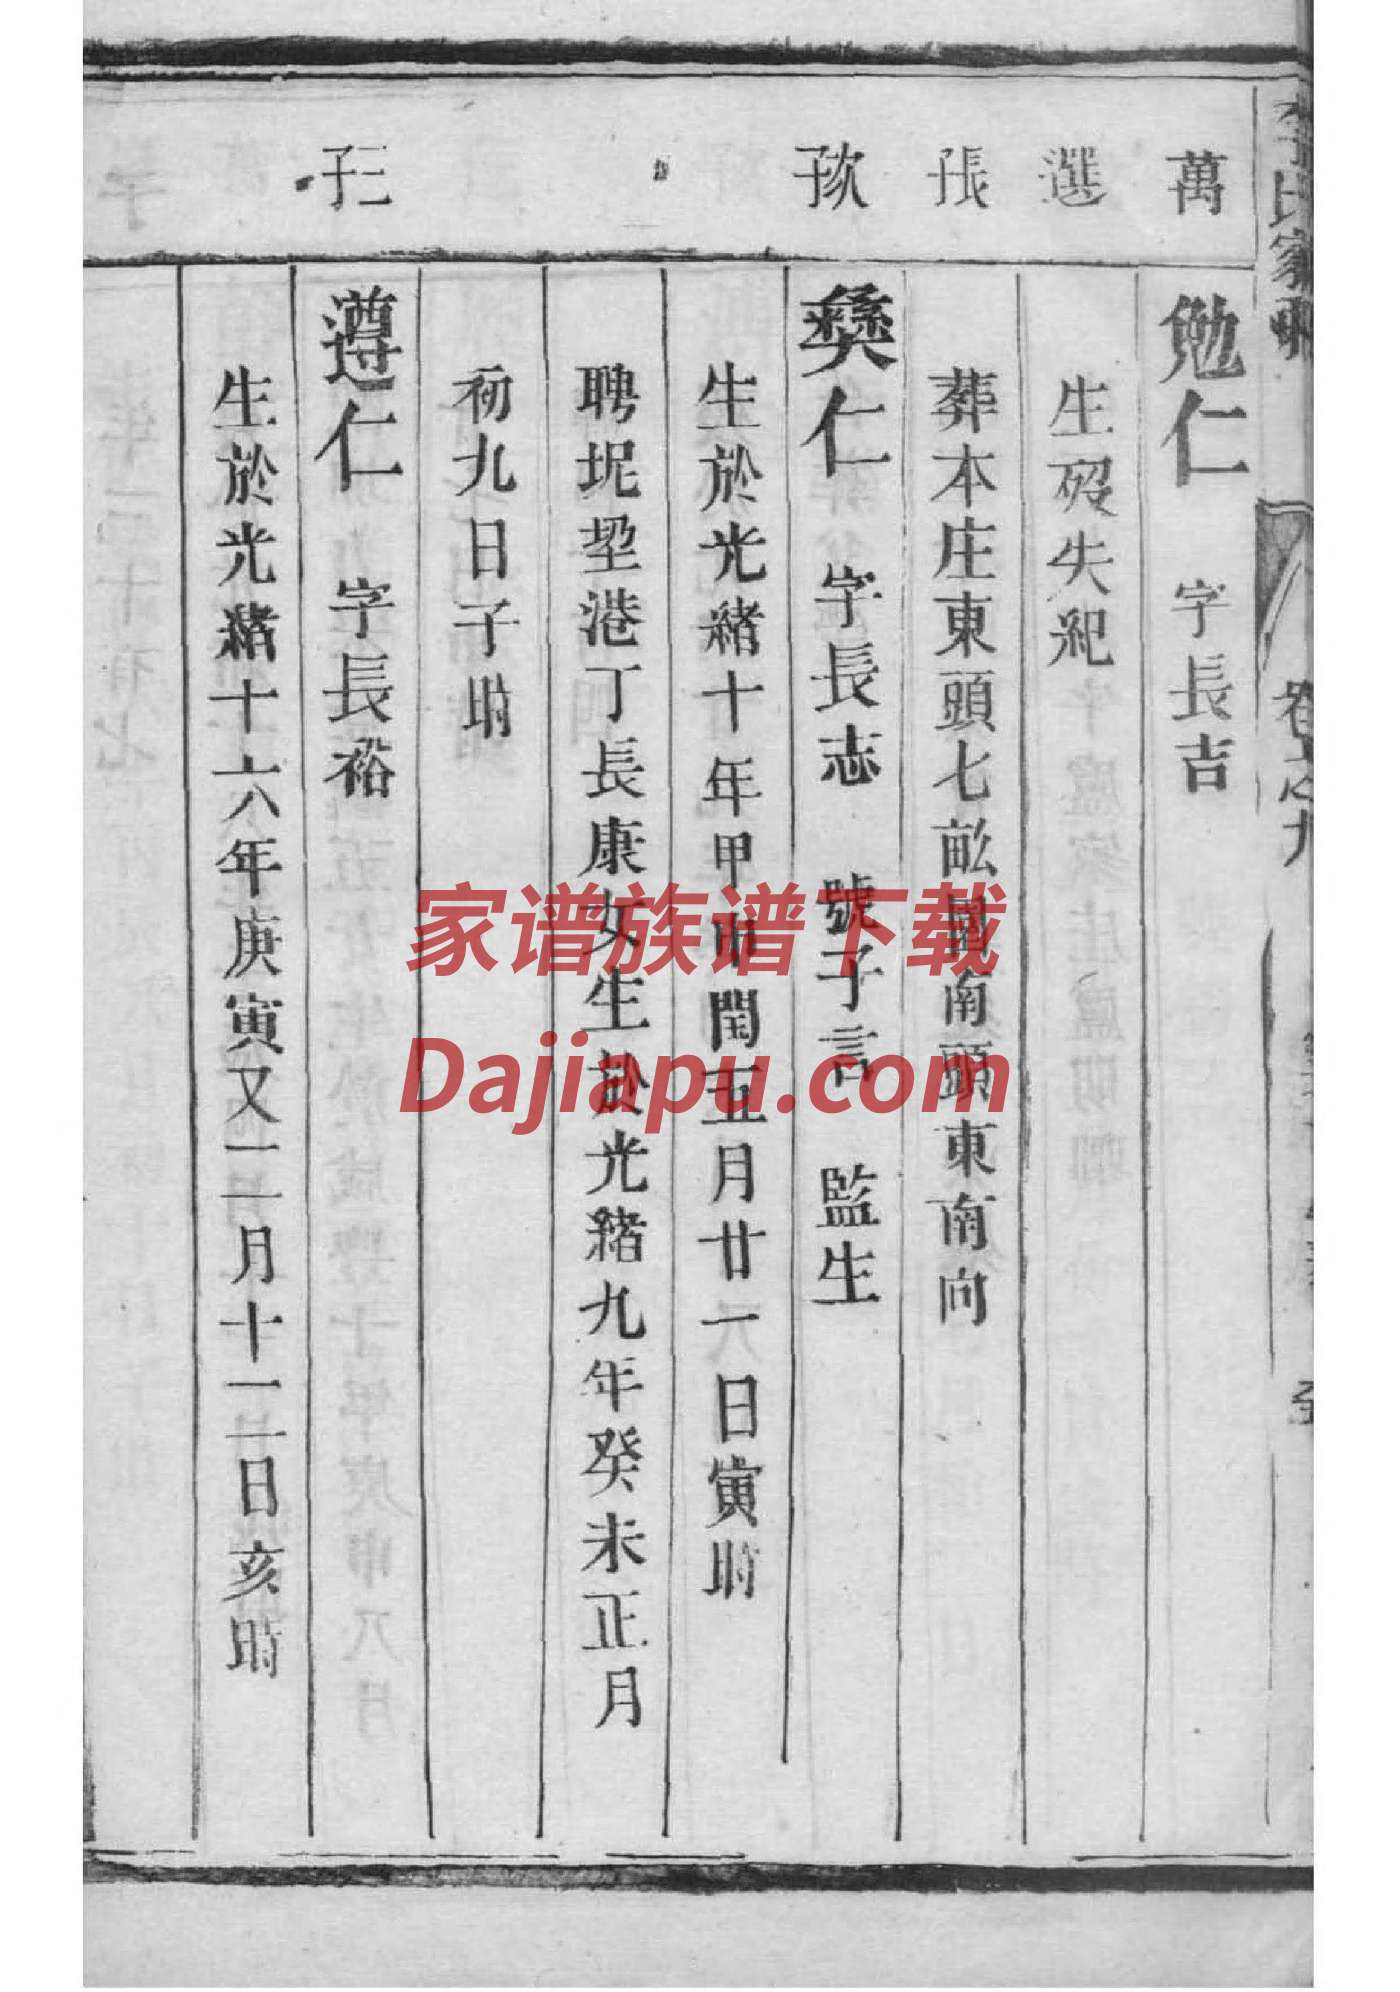 李氏家乘
卷之九
萬選長子
勉仁 字長吉
生殁失紀
葬本庄東頭七畝里南頭東南向
次子
彝仁 字長志 號子言 監生
生於光緒十年甲申閏五月廿一日寅時
聘坭堊港丁長康女生於光緒九年癸未正月
初九日子時
三子
遵仁 字長裕
生於光緒十六年庚寅又二月十二日亥時
家谱族谱下载
Dajiapu.com